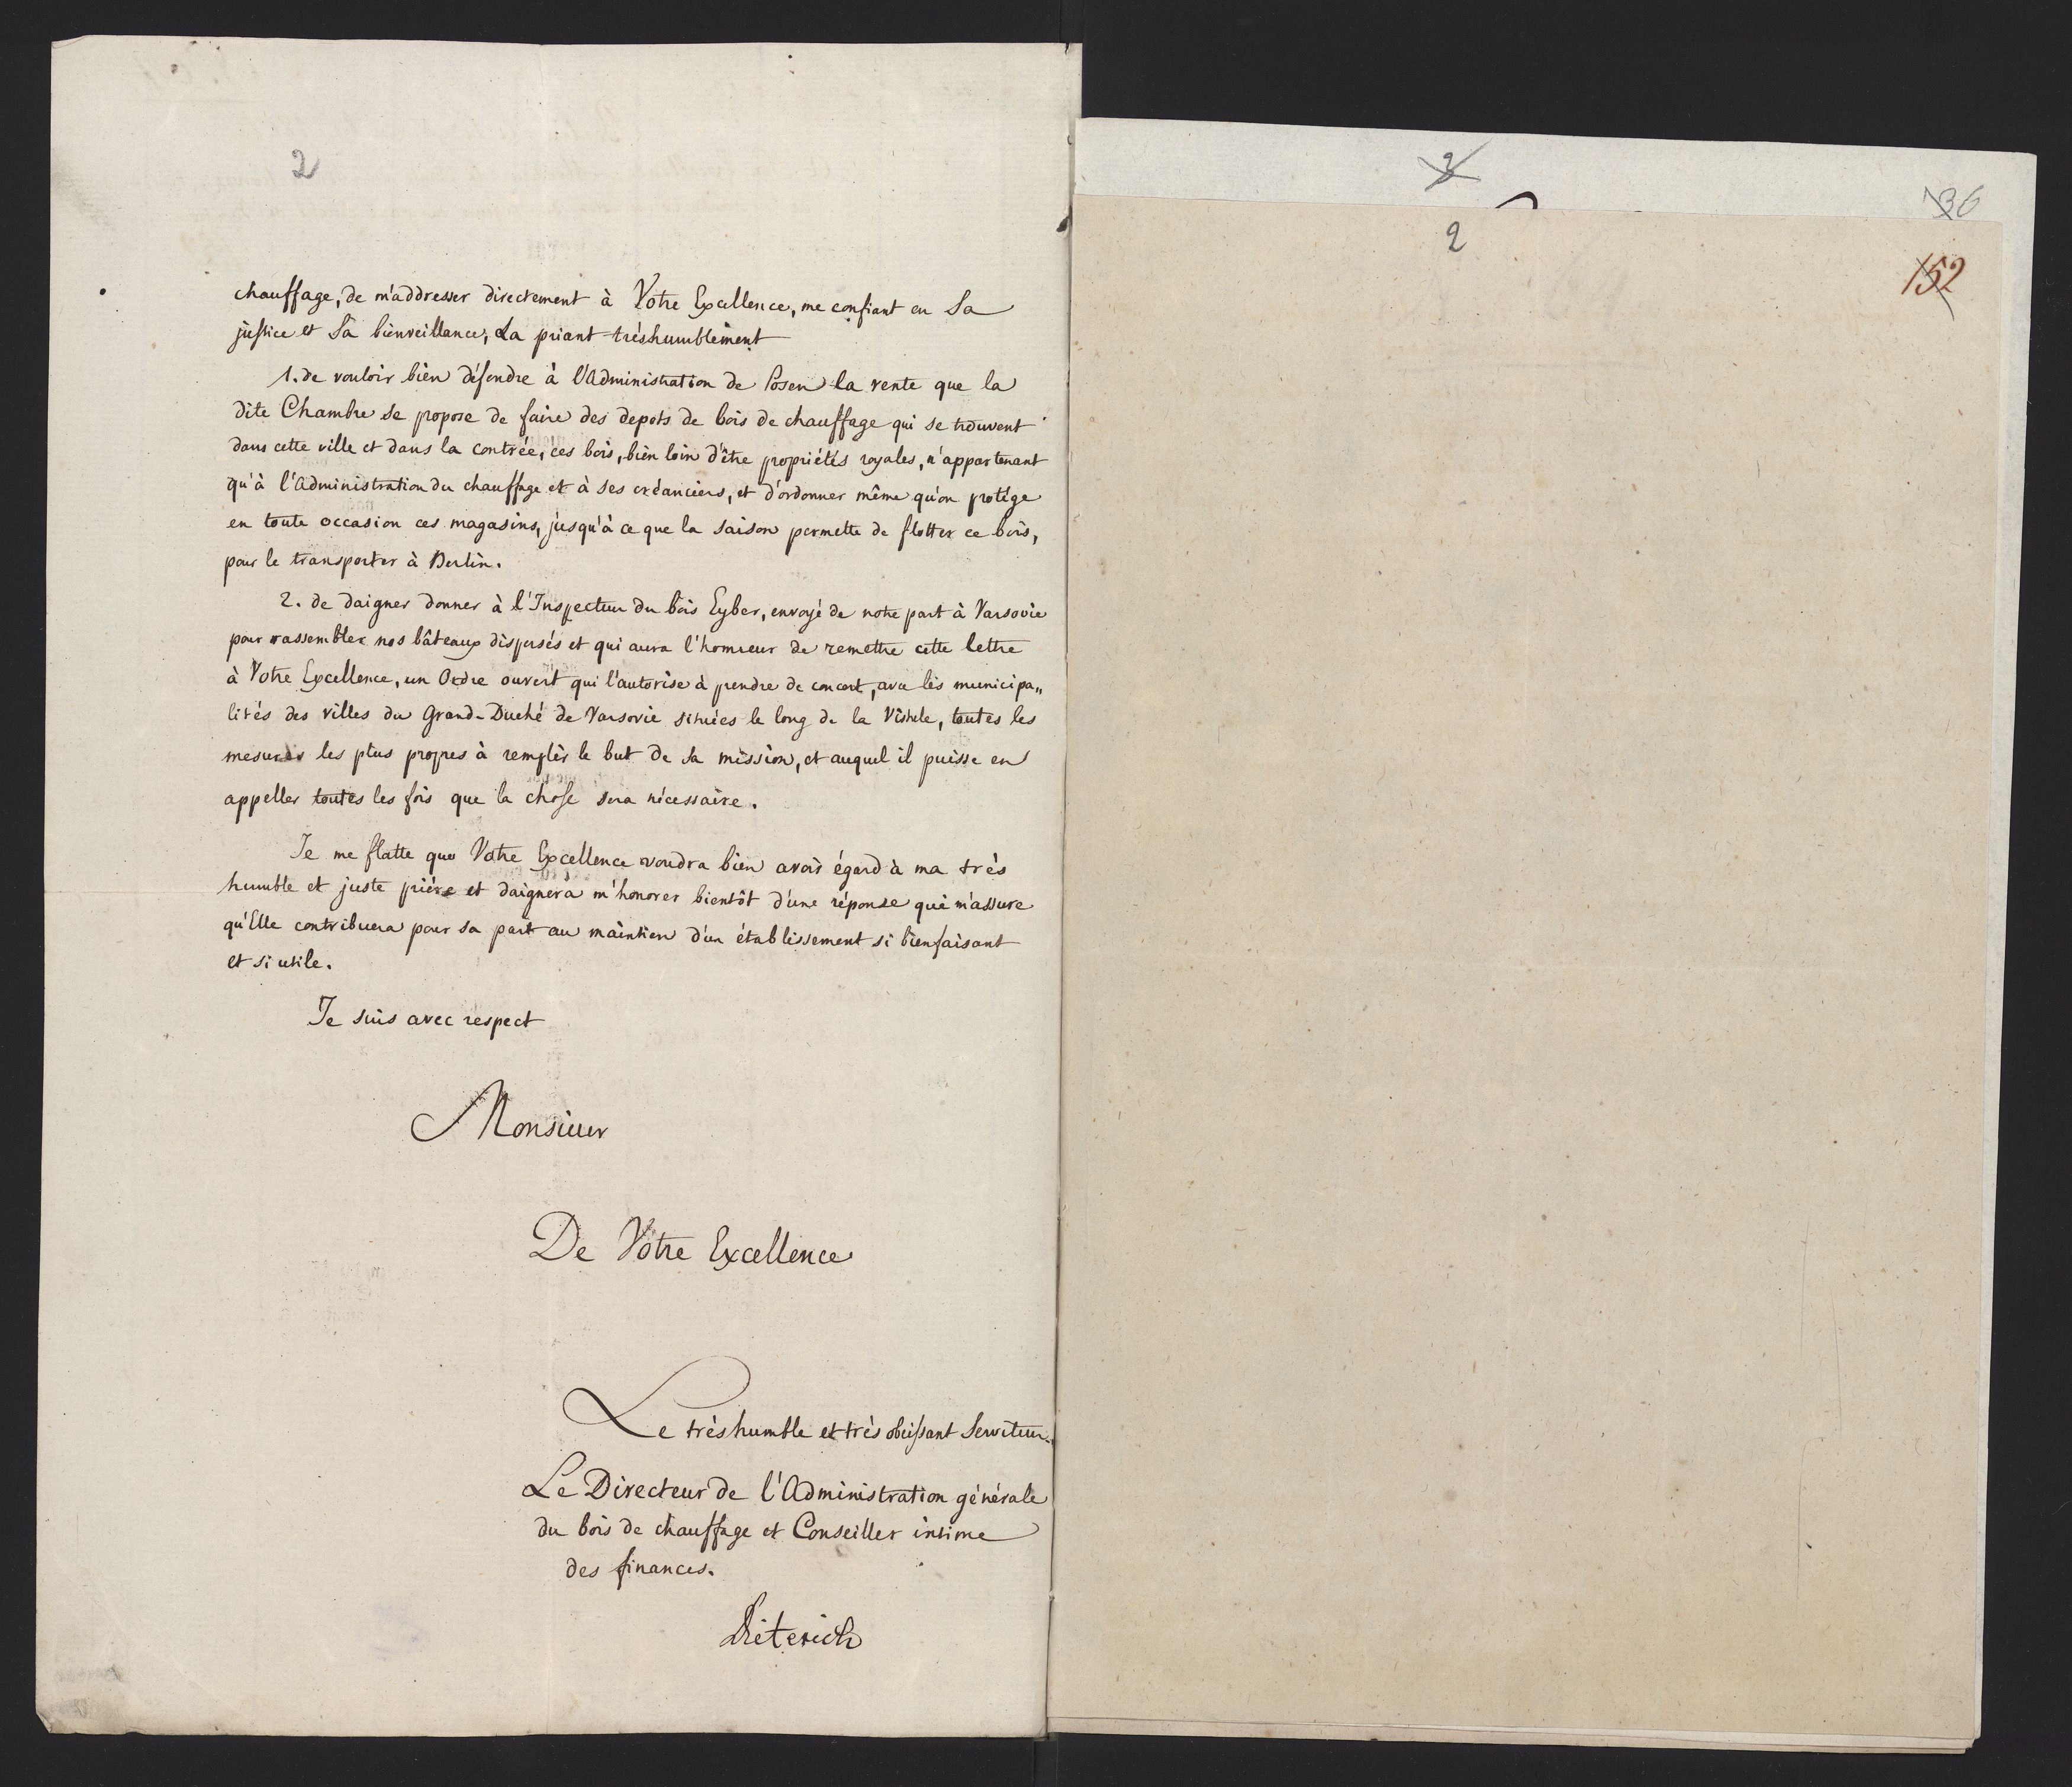 2
chauffage, de m'addresser directement à Votre Excellence, me confiant en Sa
justice et Sa bienveillance, La priant tréshumblement
1. de vouloir bien défendre à l'Administration de Posen la vente que la
dite Chambre se propose de faire des depots de bois de chauffage qui se trouvent
dans cette ville et dans la contrée, ces bois, bien loin d'être propriétés royales, n'appartenant
qu'à l'Administration du chauffage et à ses créanciers, et d'ordonner même qu'on protége
en toute occasion ces magasins, jusqu'à ce que la saison permette de flotter ce bois,
pour le transporter à Berlin.
2. de daigner donner à l'Inspecteur du bois Eyber, envoyé de notre part à Varsovie
pour rassembler nos bâteaux dispersés et qui aura l'honneur de remettre cette lettre
à Votre Excellence, un Ordre ouvert qui l'autorise à prendre de concert, avec les municipa„
lités des villes du Grand-Duché de Varsovie situées le long de la Vistule, toutes les
mesures les plus propres à remplir le but de sa mission, et auquel il puisse en
appeller toutes les fois que la chose sera nécessaire.
Je me flatte que Votre Excellence voudra bien avoir égard à ma trés
humble et juste priére et daignera m'honorer bientôt d'une réponse qui m'assure
qu'Elle contribuera pour sa part au maintien d'un établissement si bienfaisant
et si utile.
Je suis avec respect
Monsieur
De Votre Excellence
Le tréshumble et trés obeissant Serviteur.
Le Directeur de l'Administration générale
du bois de chauffage et Conseiller intime
des finances.
Dieterich
3
36
2
152